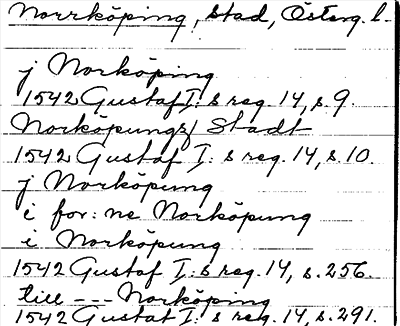 Norrköping, stad, Österg. l.
j Norköping
1542 Gustaf I:s reg. 14, s. 9.
Norköpungs Stadt
1542 Gustaf I:s reg. 14, s. 10.
j Norköpung
i for:ne Norköpung
i Norköpung
1542 Gustaf I:s reg. 14, s. 256.
till --- Norköping
1542 Gustaf I:s reg. 14, s. 291.